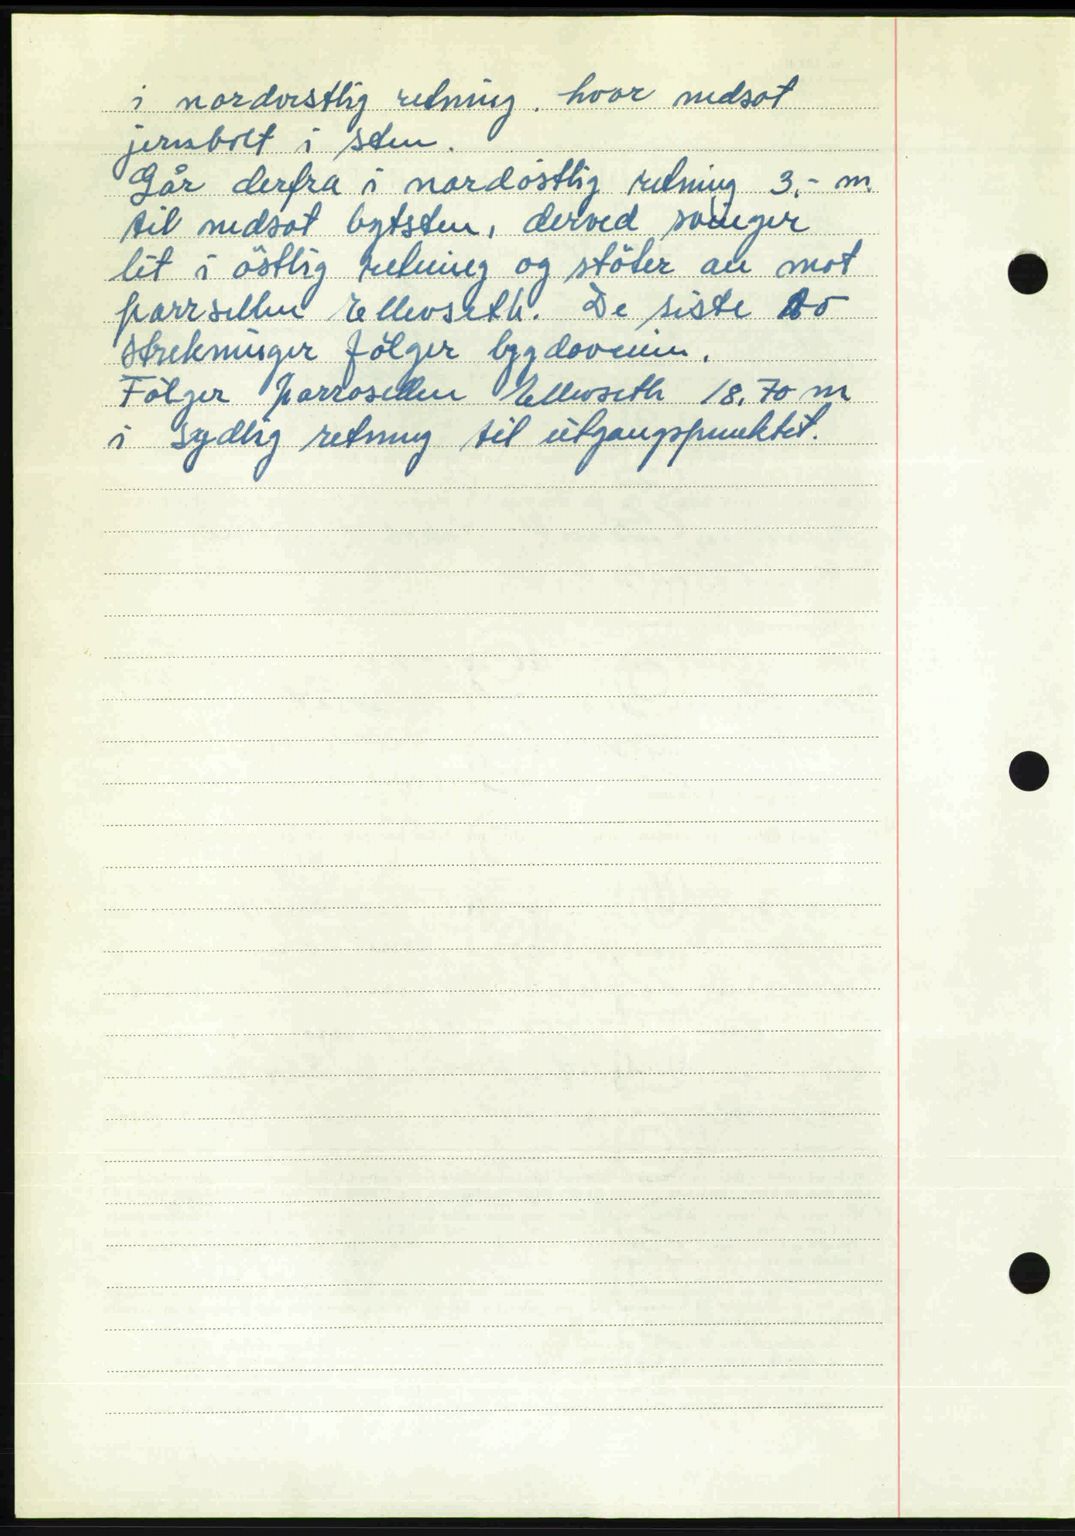 i nordvestlig retning. hvor nedsat
jernbolt i sten.
Går derfra i nordöstlig retning 3,- m.
til nedsat bytsten, derved svinger
lit i östlig retning og stöter an mot
parzsellen Ellevseth. De siste to
strekninger fölger bygdaveien.
Fölger parrosellen Ellevseth 18,70 m
i sydlig retning til utgangspunktet.